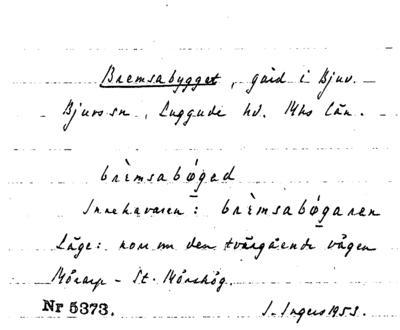 Bremsabygget, gård i Bjuv.
Bjuvs sn, Luggude hd. Mhs län.
brèmsabøged
Innehavaren: brèmsabøgaren
Läge: norr om den tvärgående vägen
Mörarp - St. Mörshög.
Nr 5373. I. Ingers 1953.